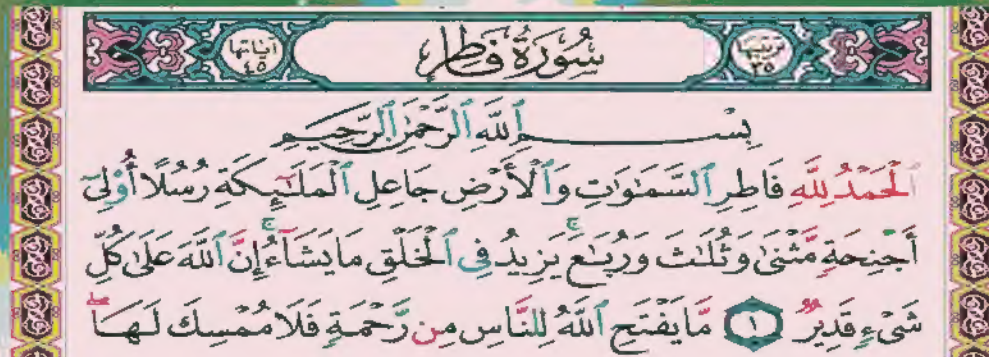 ترتيبها ٣٥ سُورَةُ فَاطِرٍ آياتها ٤٥
بِسْمِ ٱللَّهِ ٱلرَّحْمَٰنِ ٱلرَّحِيمِ
ٱلْحَمْدُ لِلَّهِ فَاطِرِ ٱلسَّمَٰوَٰتِ وَٱلْأَرْضِ جَاعِلِ ٱلْمَلَٰٓئِكَةِ رُسُلًا أُو۟لِىٓ
أَجْنِحَةٍ مَّثْنَىٰ وَثُلَٰثَ وَرُبَٰعَ ۚ يَزِيدُ فِى ٱلْخَلْقِ مَا يَشَآءُ ۚ إِنَّ ٱللَّهَ عَلَىٰ كُلِّ
شَىْءٍ قَدِيرٌ ١ مَّا يَفْتَحِ ٱللَّهُ لِلنَّاسِ مِن رَّحْمَةٍ فَلَا مُمْسِكَ لَهَا ۖ